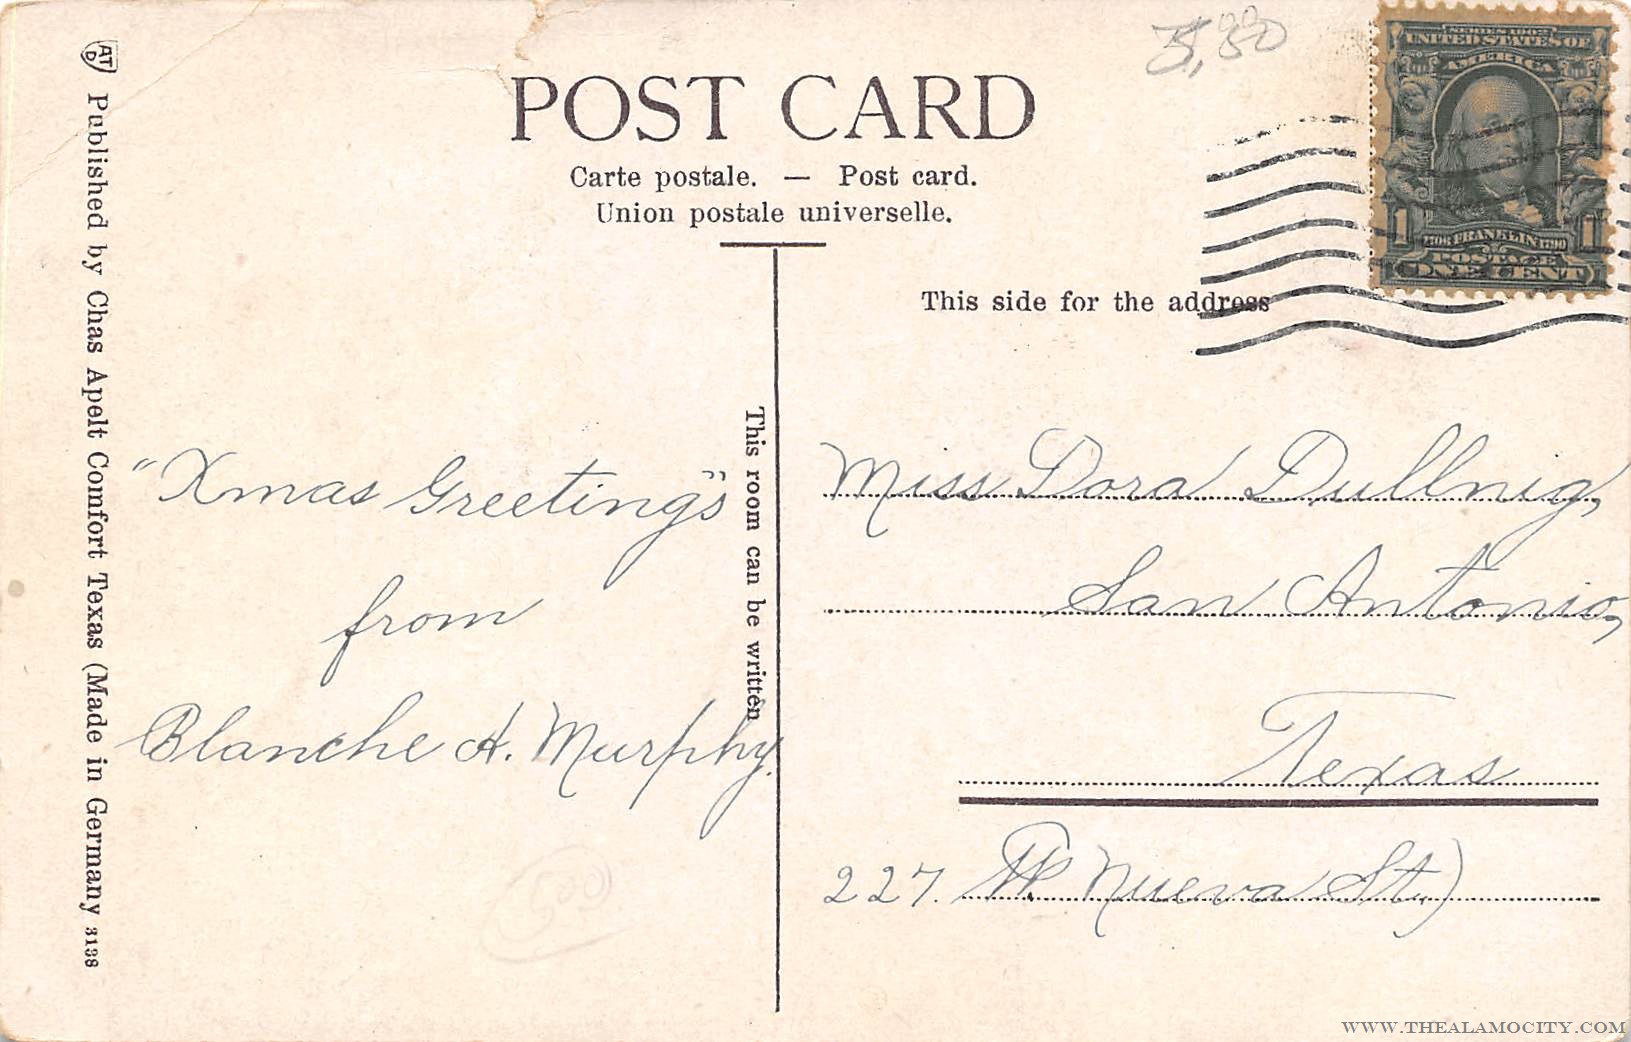 POST CARD
Carte postale. — Post card.
Union postale universelle.
5,00
SERIES 1902
UNITED STATES OF
AMERICA
1 1
1706 FRANKLIN 1790
POSTAGE
ONE CENT
This side for the address
AT
D
Published by Chas Apelt Comfort Texas (Made in Germany 3138
"Xmas Greetings"
from
Blanche A. Murphy.
This room can be written
Miss Dora Dullnig,
San Antonio,
Texas
227. W Nueva St.)
500
WWW.THEALAMOCITY.COM